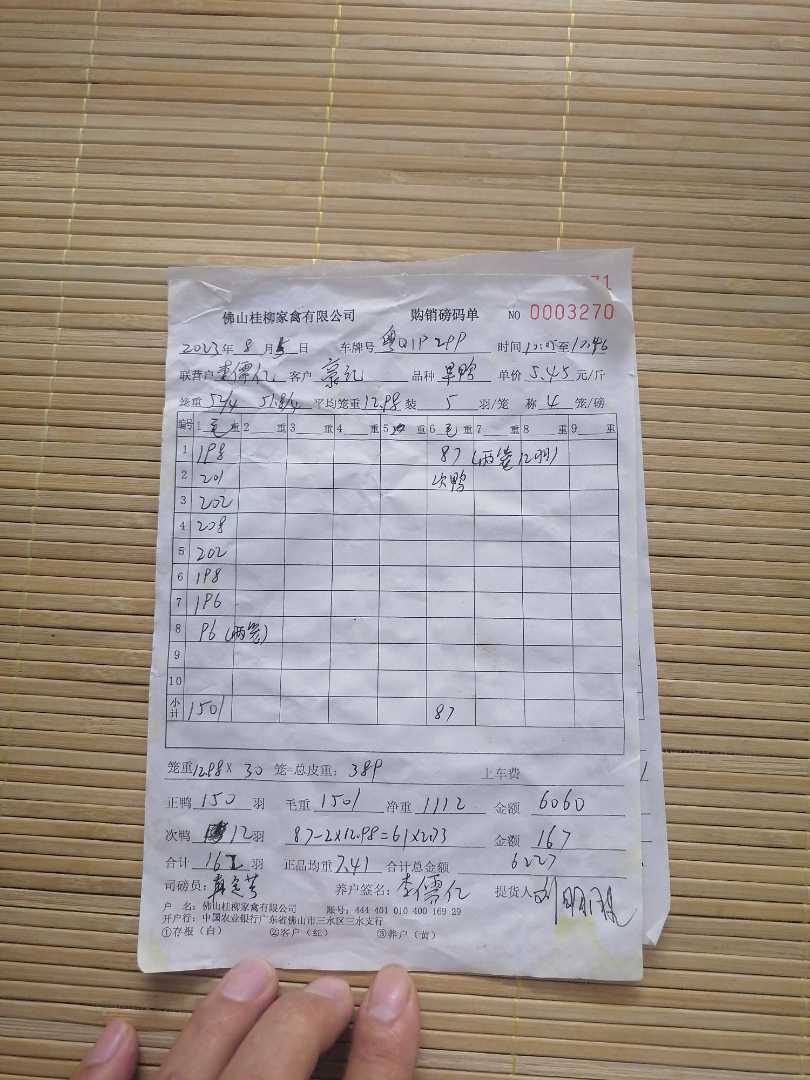 71
佛山桂柳家禽有限公司 购销磅码单 NO 0003270
2023年 8 月 5 日 车牌号 粤Q1P299 时间 10:05至10:46
联营户 李儒亿 客户 品种 旱鸭 单价 5.45 元/斤
笼重 52/4 51.8/4 平均笼重 12.98 装 5 羽/笼 称 4 笼/磅
编号 1 毛 重 2 重 3 重 4 重 5 重 6 毛 重 7 重 8 重 9 重
1 198 87 (两笼12羽)
2 201 次鸭
3 202
4 208
5 202
6 198
7 196
8 96 (两笼)
9
10
小计 1501 87
笼重 12.98 × 30 笼=总皮重: 389 上车费
正鸭 150 羽 毛重 1501 净重 1112 金额 6060
次鸭 12 羽 87-2×12.98=61×2.73 金额 167
合计 162 羽 正品均重 7.41 合计总金额 6227
司磅员: 养户签名: 李儒亿 提货人
户 名: 佛山桂柳家禽有限公司 账号: 444 401 010 400 169 29
开户行: 中国农业银行广东省佛山市三水区三水支行
①存根(白) ②客户(红) ③养户(黄)